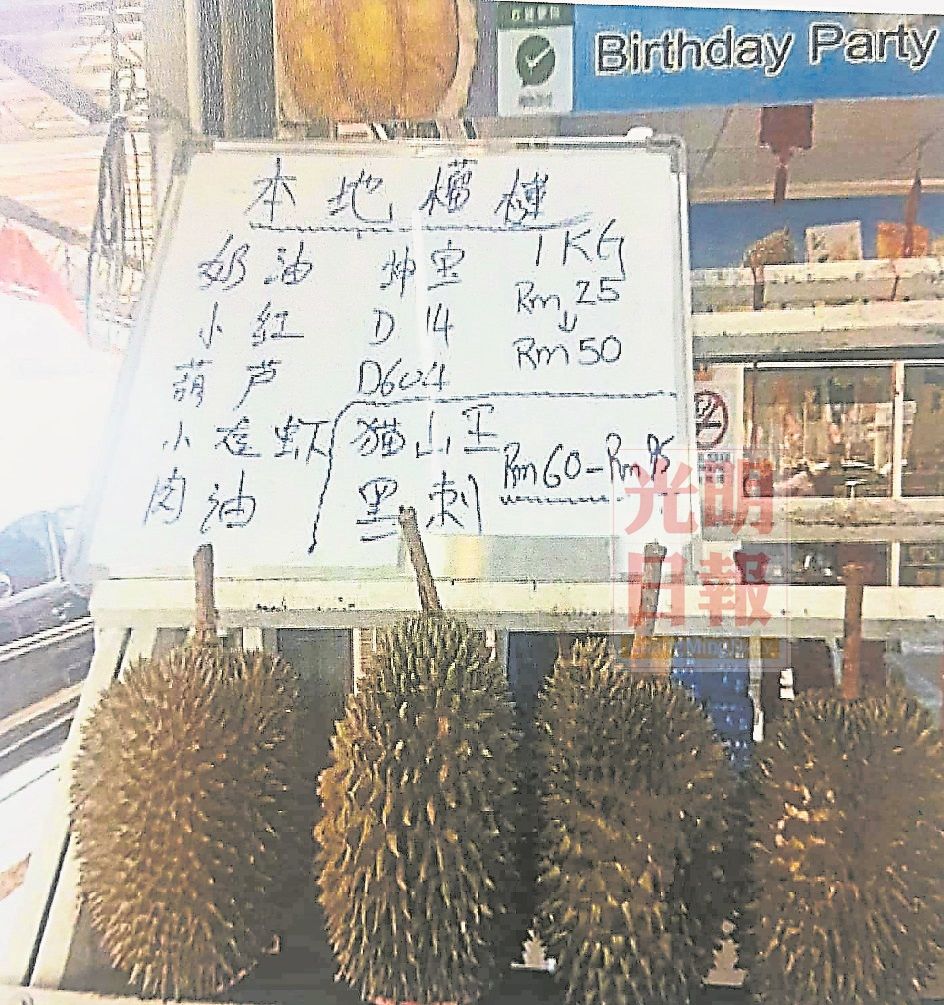 Birthday Party
本地榴槤
奶油 坤宝 1KG
小红 D14 Rm 25
葫芦 D604 Rm 50
小连虾 猫山王 Rm60-Rm85
肉油 黑刺
光明
日報